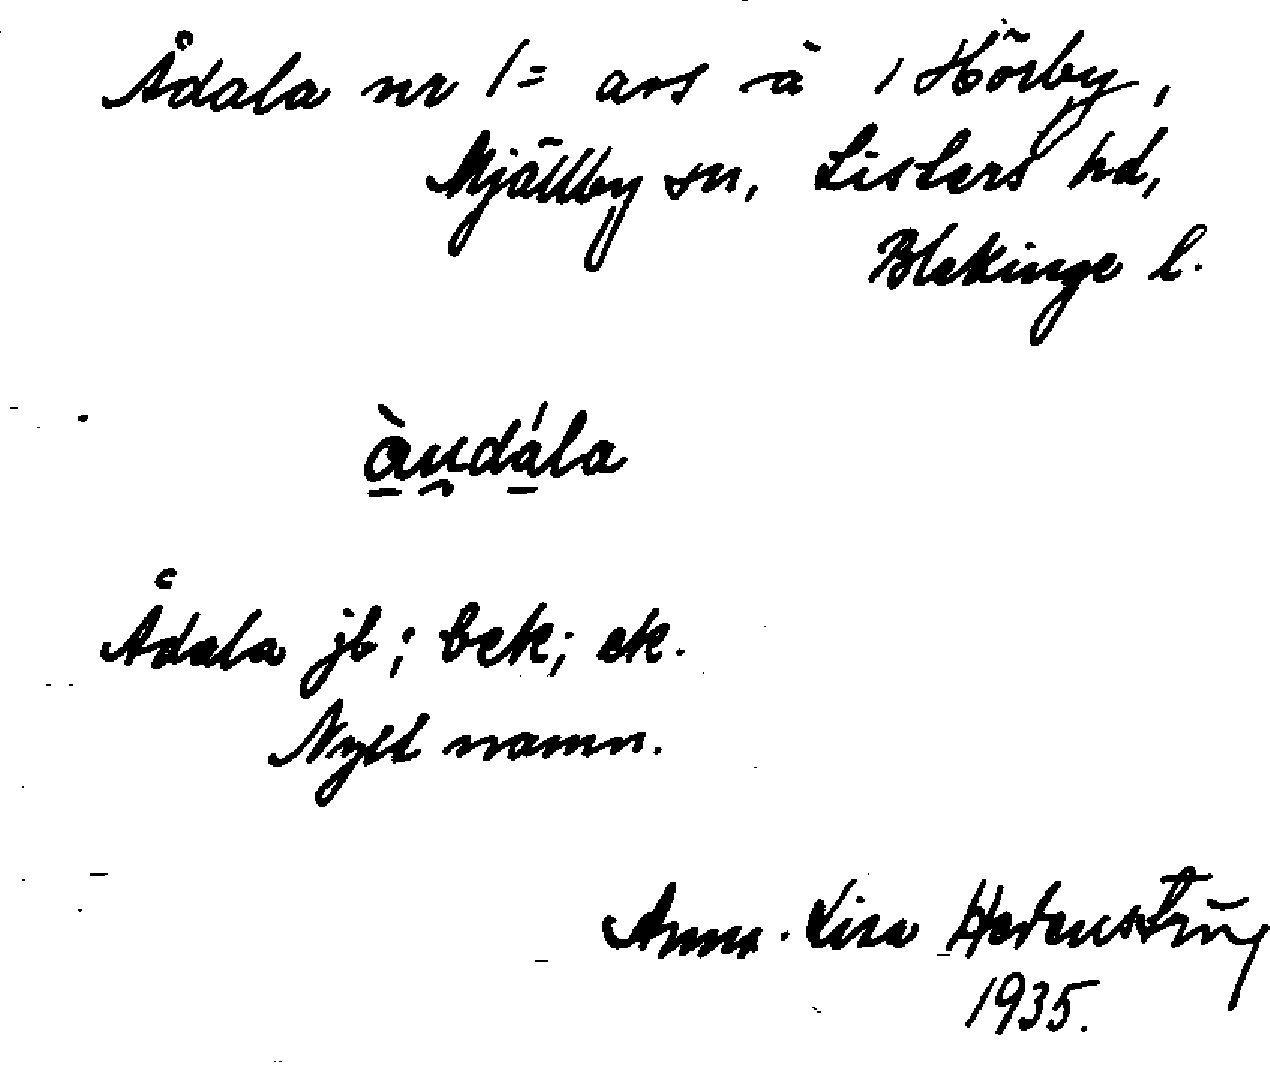 Ådala nr 1 = avs å i Hörby,
Mjällby sn, Listers hd,
Blekinge l.
àu̯dála
Ådala jb; bek; ek.
Nytt namn.
Anna-Lisa Hedenstrüg
1935.